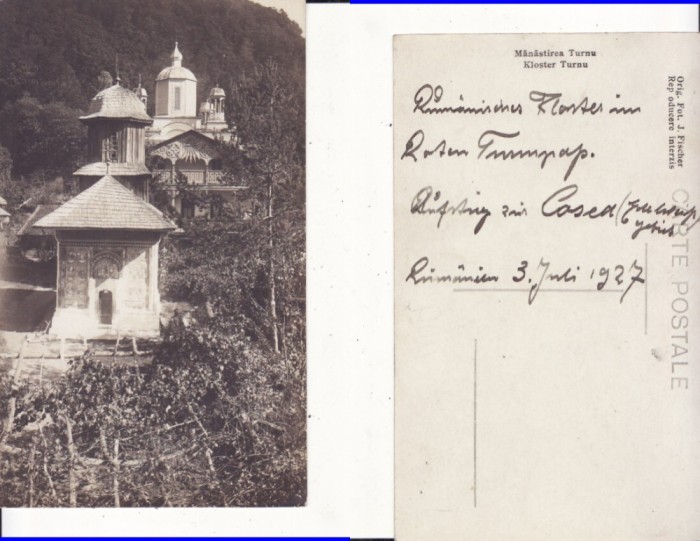 Mănăstirea Turnu
Kloster Turnu
Orig. Fot. J. Fischer
Reproducere interzis
Rumänisches Kloster im
Roten Turmpaß.
Aufstieg zur Cosea
gebiet
Rumänien 3. Juli 1927
CARTE POSTALE